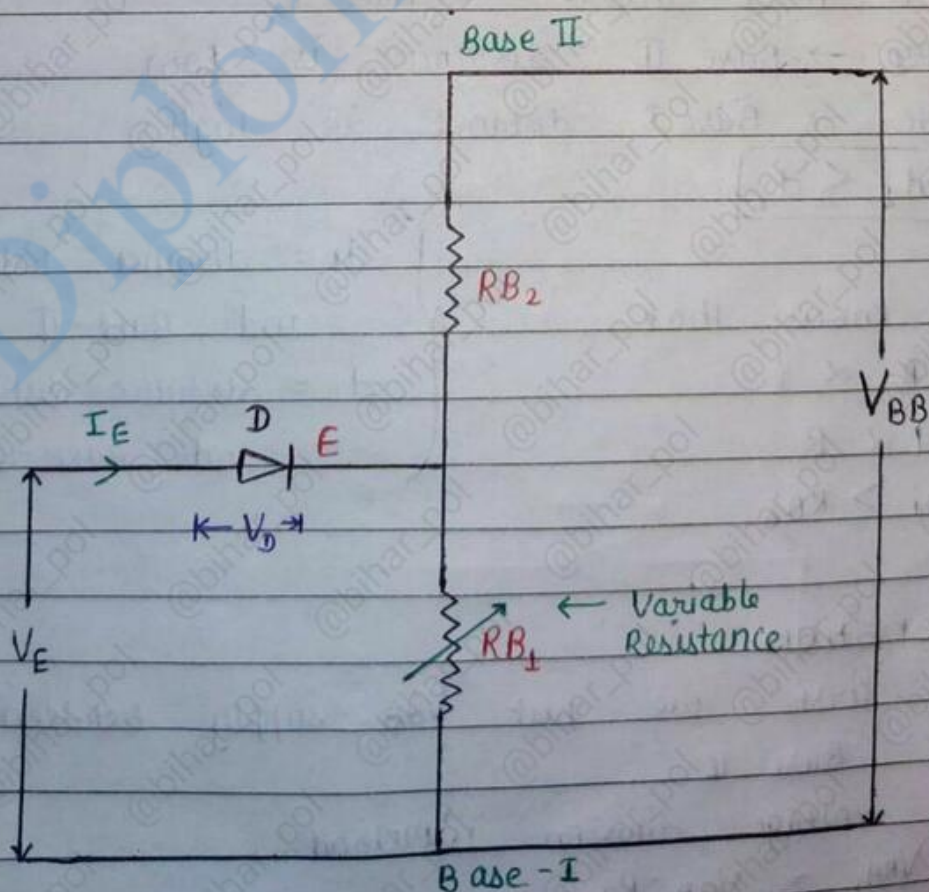 Base II
RB2
VBB
IE
D
E
VD
VE
← Variable
Resistance
RB1
Base-I
Diplom
@bihar_pol